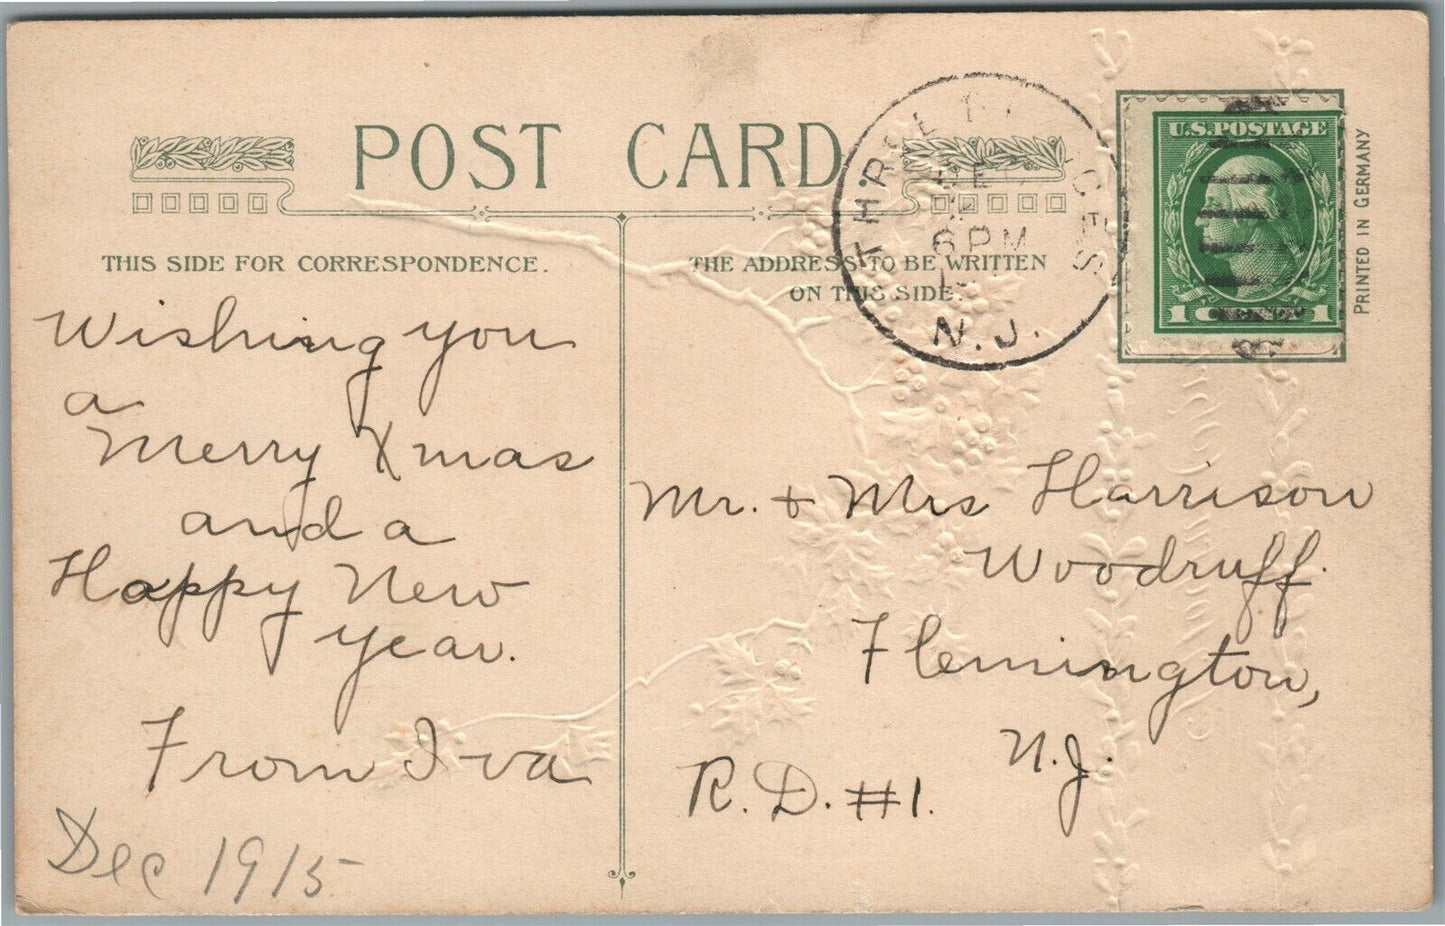 POST CARD
THIS SIDE FOR CORRESPONDENCE.
THE ADDRESS TO BE WRITTEN
ON THIS SIDE.
6 PM
N.J.
U.S. POSTAGE
1 1
PRINTED IN GERMANY
Wishing you
a
Merry Xmas
and a
Happy New
year.
From Iva
Dec 1915
Mr. + Mrs Harrison
Woodruff.
Flemington,
N.J.
R.D. #1.